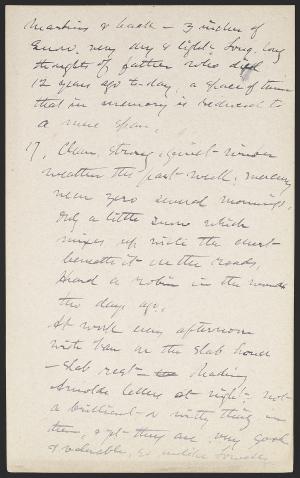 Martins & back — 3 inches of
snow, very dry & light. Long, long
thoughts of father who died
12 years ago to-day, a space of time
that in memory is reduced to
a mere span.
17. Clear, strong, quiet winter
weather the past week; mercury
near zero several mornings,
only a little snow which
mixes up with the dust
beneath it on the roads.
Heard a robin in the woods
two days ago.
At work every afternoon
with Van on the Slab house
— Slab rest — Reading
Arnolds letters at night. not
a brilliant or witty thing in
them, & yet they are very good
& valuable, so unlike Lowells